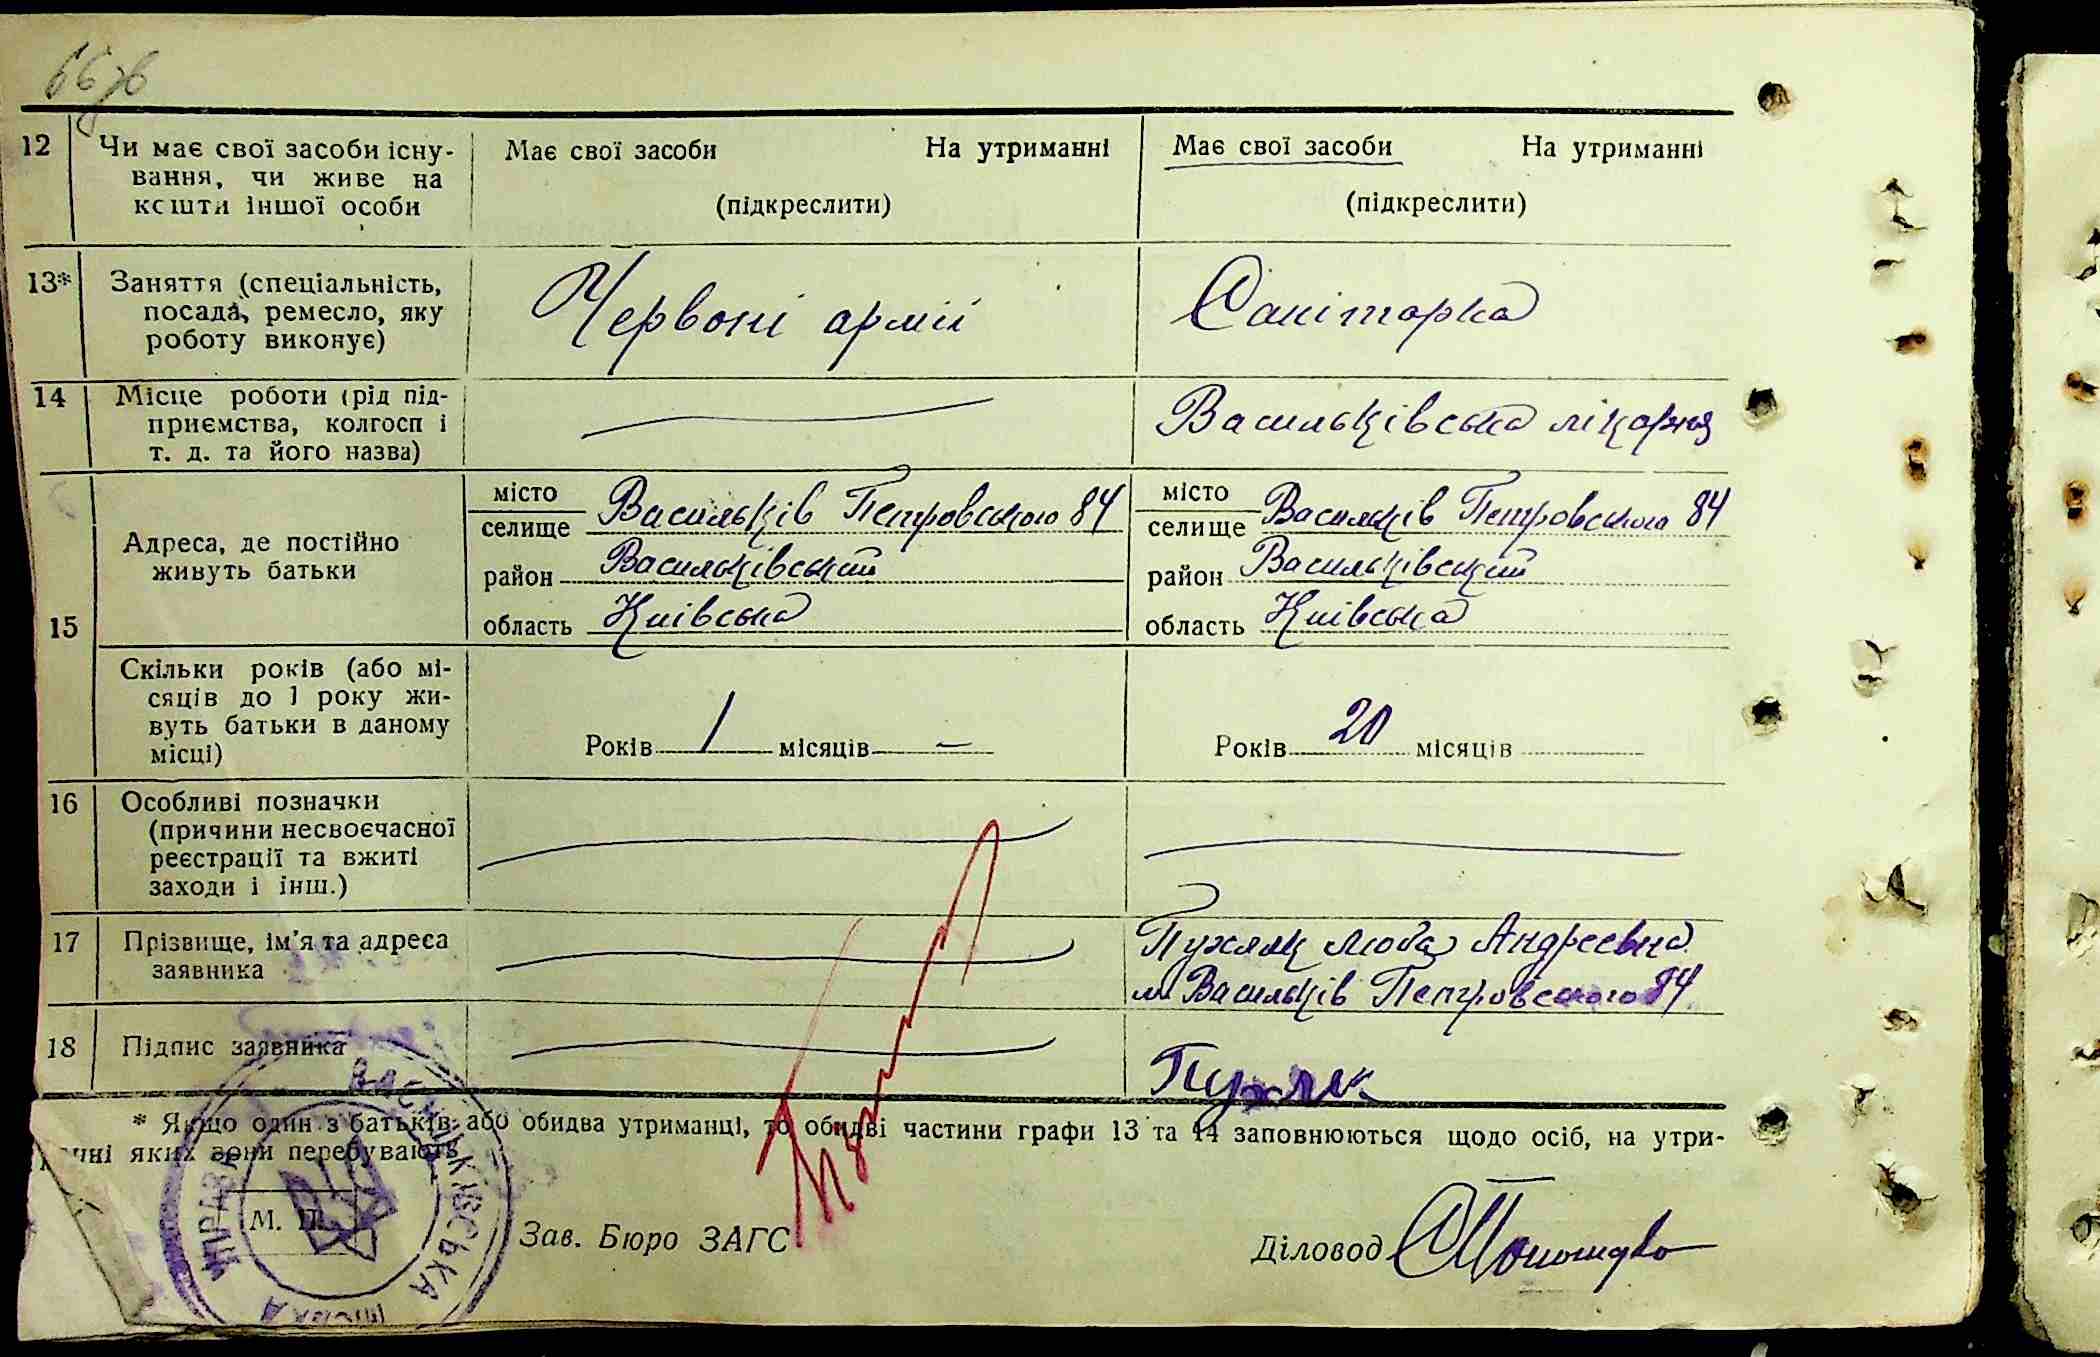 12 Чи має свої засоби існу- Має свої засоби На утриманні Має свої засоби На утриманні
вання, чи живе на
кошти іншої особи (підкреслити) (підкреслити)
13* Заняття (спеціальність, Червоні армії Санітарка
посада, ремесло, яку
роботу виконує)
14 Місце роботи (рід під- Васильківська лікарня
приємства, колгосп і
т. д. та його назва)
15 Адреса, де постійно живуть батьки
місто селище Васильків Петровського 84 місто селище Васильків Петровського 84
район Васильківський район Васильківський
область Київська область Київська
Скільки років (або мі-
сяців до 1 року жи-
вуть батьки в даному
місці) Років 1 місяців – Років 20 місяців
16 Особливі позначки
(причини несвоєчасної
реєстрації та вжиті
заходи і інш.)
17 Прізвище, ім'я та адреса Пухляк Люба Андреєвна
заявника м Васильків Петровського 84
18 Підпис заявника Пухляк
* Якщо один з батьків або обидва утриманці, то обидві частини графи 13 та 14 заповнюються щодо осіб, на утри-
манні яких вони перебувають
М. П.
Зав. Бюро ЗАГС Діловод
ВАСИЛЬКІВСЬКА МІСЬКА УПРАВА